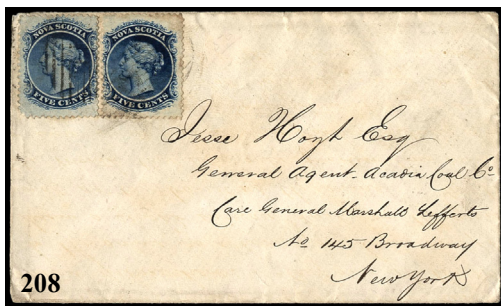 NOVA SCOTIA
FIVE CENTS
NOVA SCOTIA
FIVE CENTS
Jesse Hoyt Esq
General Agent. Acadia Coal Co
Care General Marshall Lefferts
No 145 Broadway
New York
208